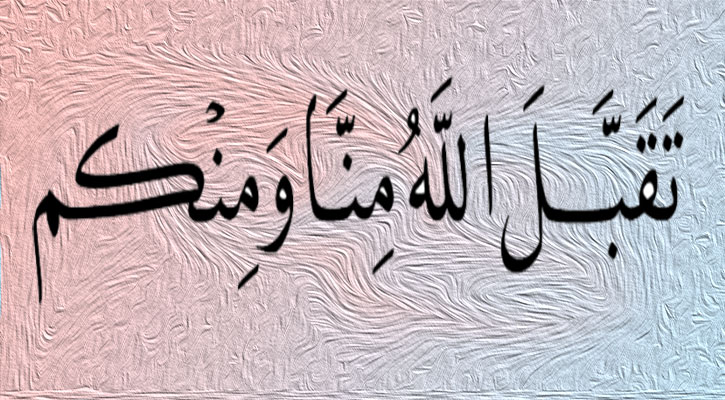 تَقَبَّلَ اللَّهُ مِنَّا وَمِنْكم